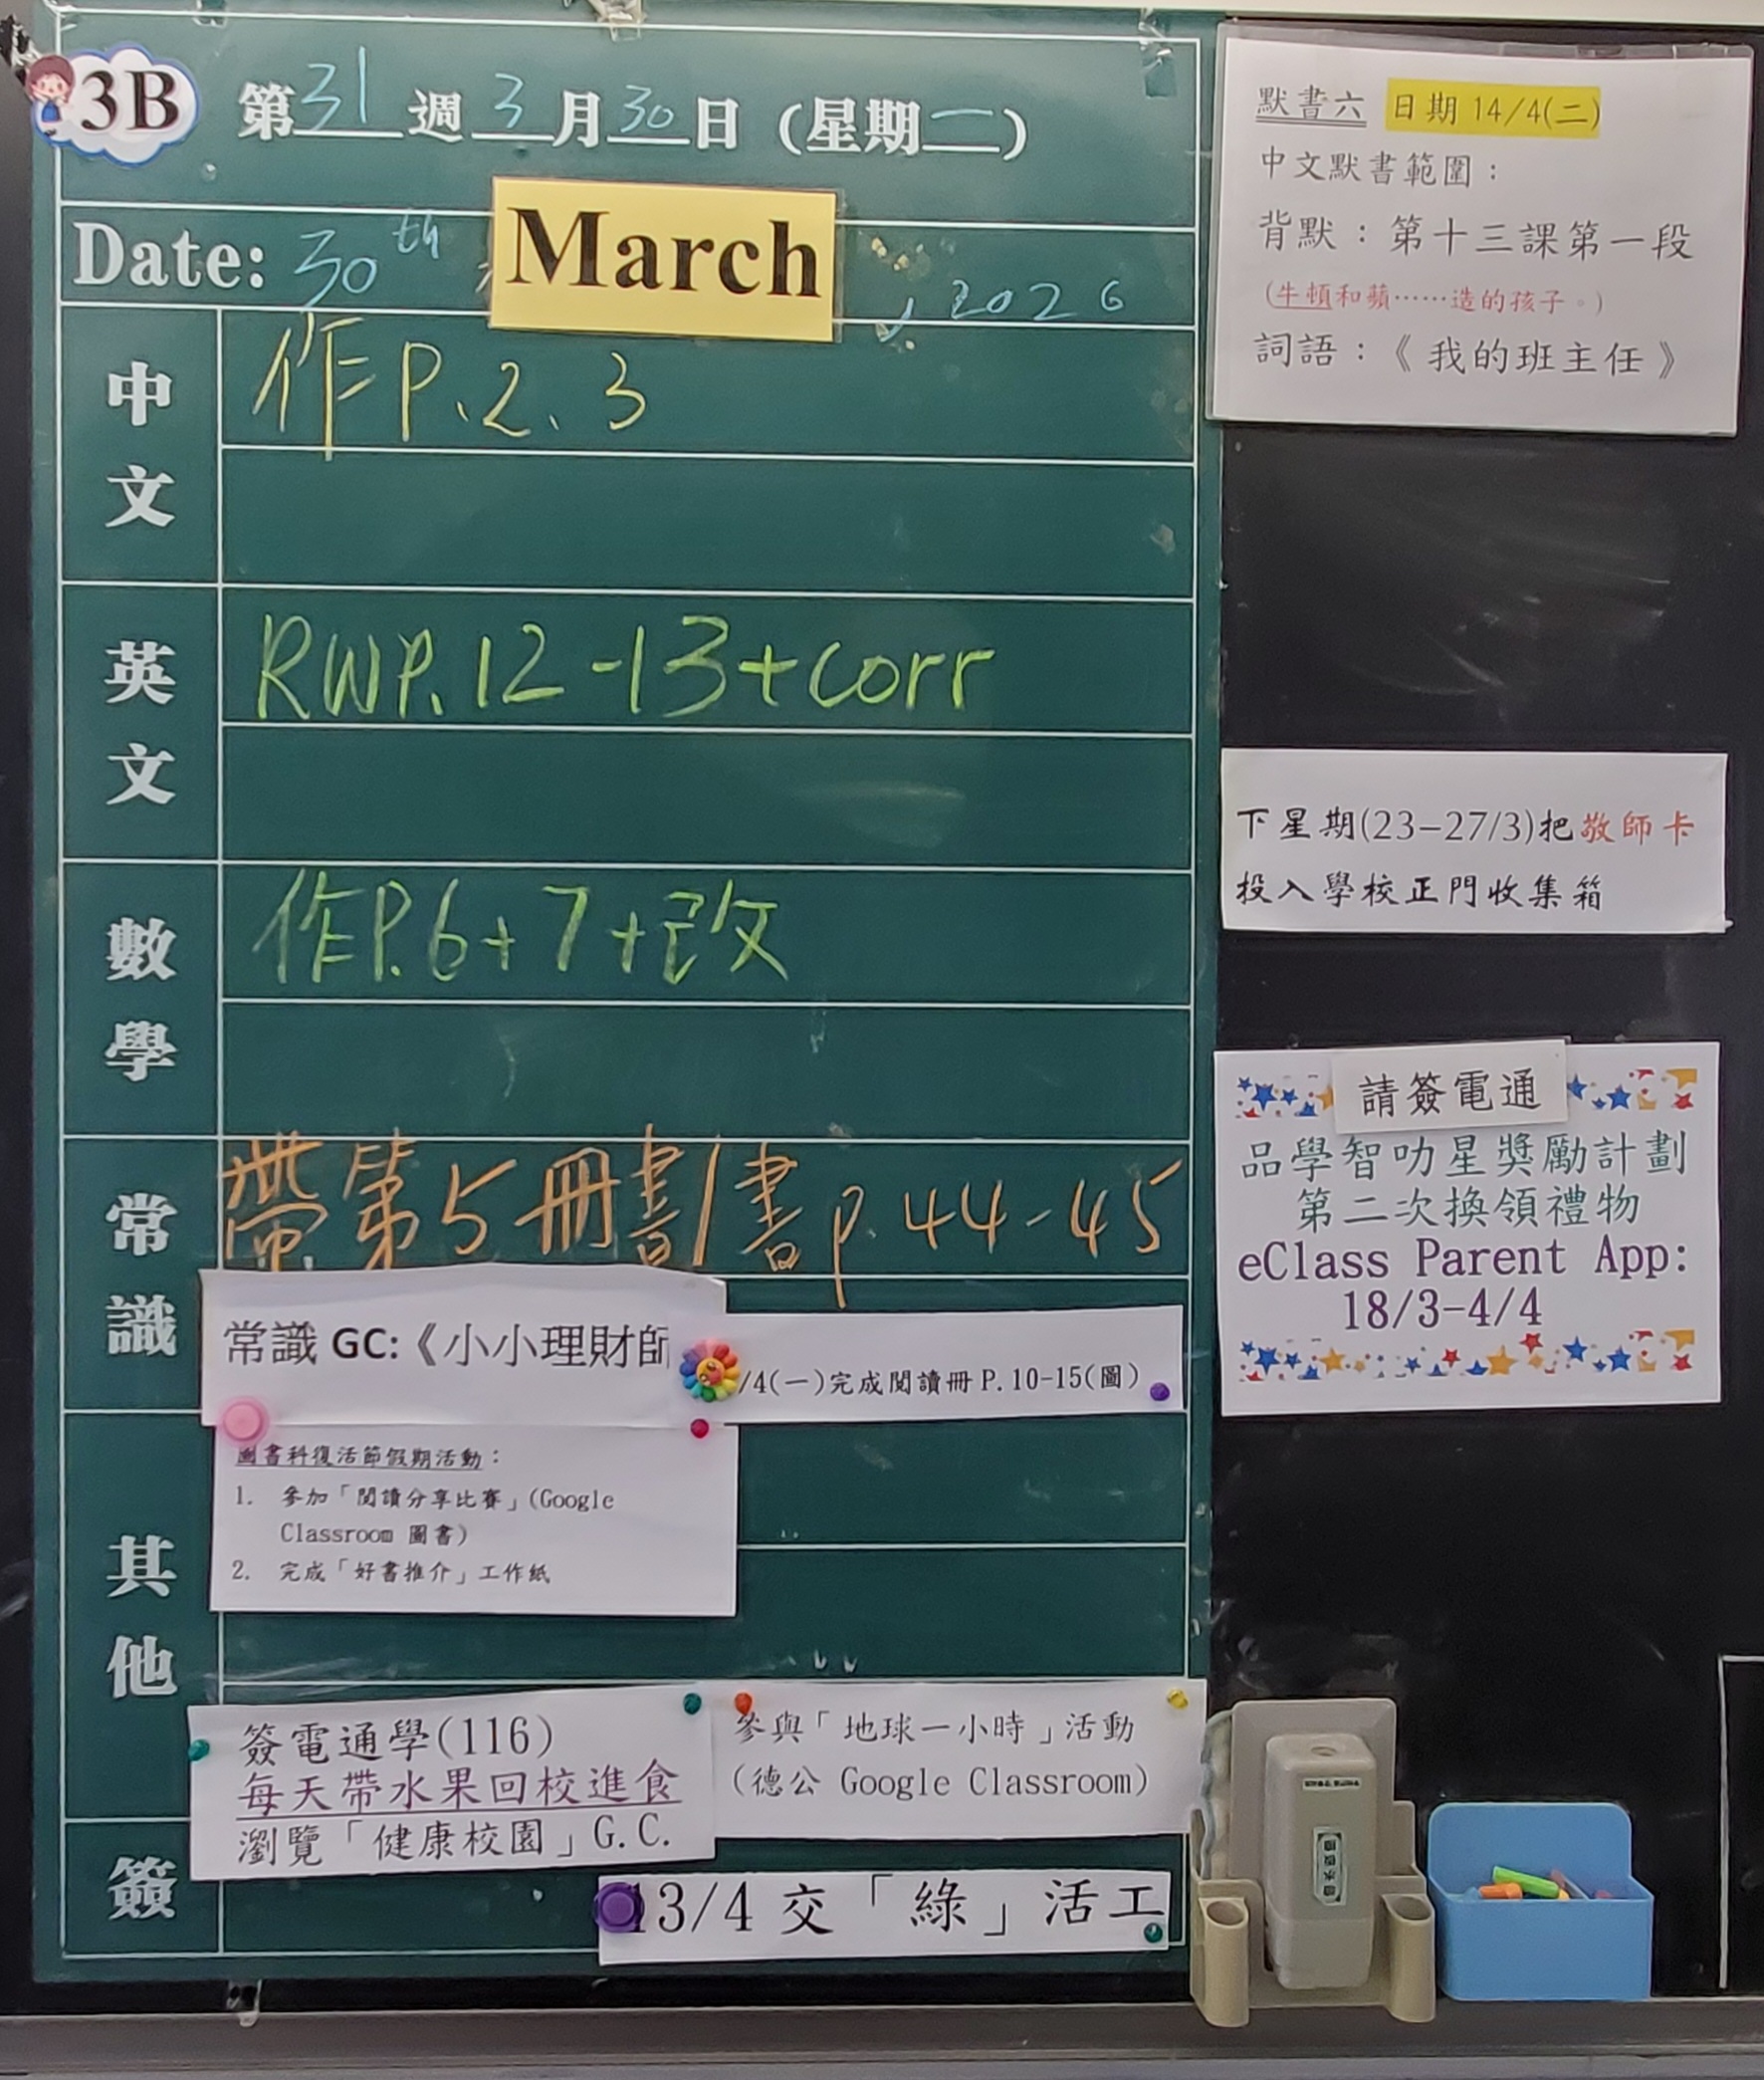 3B
第31週3月30日(星期一)
Date: 30th March, 2026
中文
作P.2、3
英文
RWP.12-13+corr
數學
作P.6+7+改
常識
帶第5冊書/書p.44-45
常識 GC:《小小理財師
/4(一)完成閱讀冊 P.10-15(圖)
其他
圖書科復活節假期活動:
1. 參加「閱讀分享比賽」(Google
Classroom 圖書)
2. 完成「好書推介」工作紙
簽電通學(116)
每天帶水果回校進食
瀏覽「健康校園」G.C.
參與「地球一小時」活動
(德公 Google Classroom)
簽
13/4 交「綠」活工
默書六 日期 14/4(二)
中文默書範圍:
背默:第十三課第一段
(牛頓和蘋……造的孩子。)
詞語:《我的班主任》
下星期(23-27/3)把敬師卡
投入學校正門收集箱
請簽電通
品學智叻星獎勵計劃
第二次換領禮物
eClass Parent App:
18/3-4/4